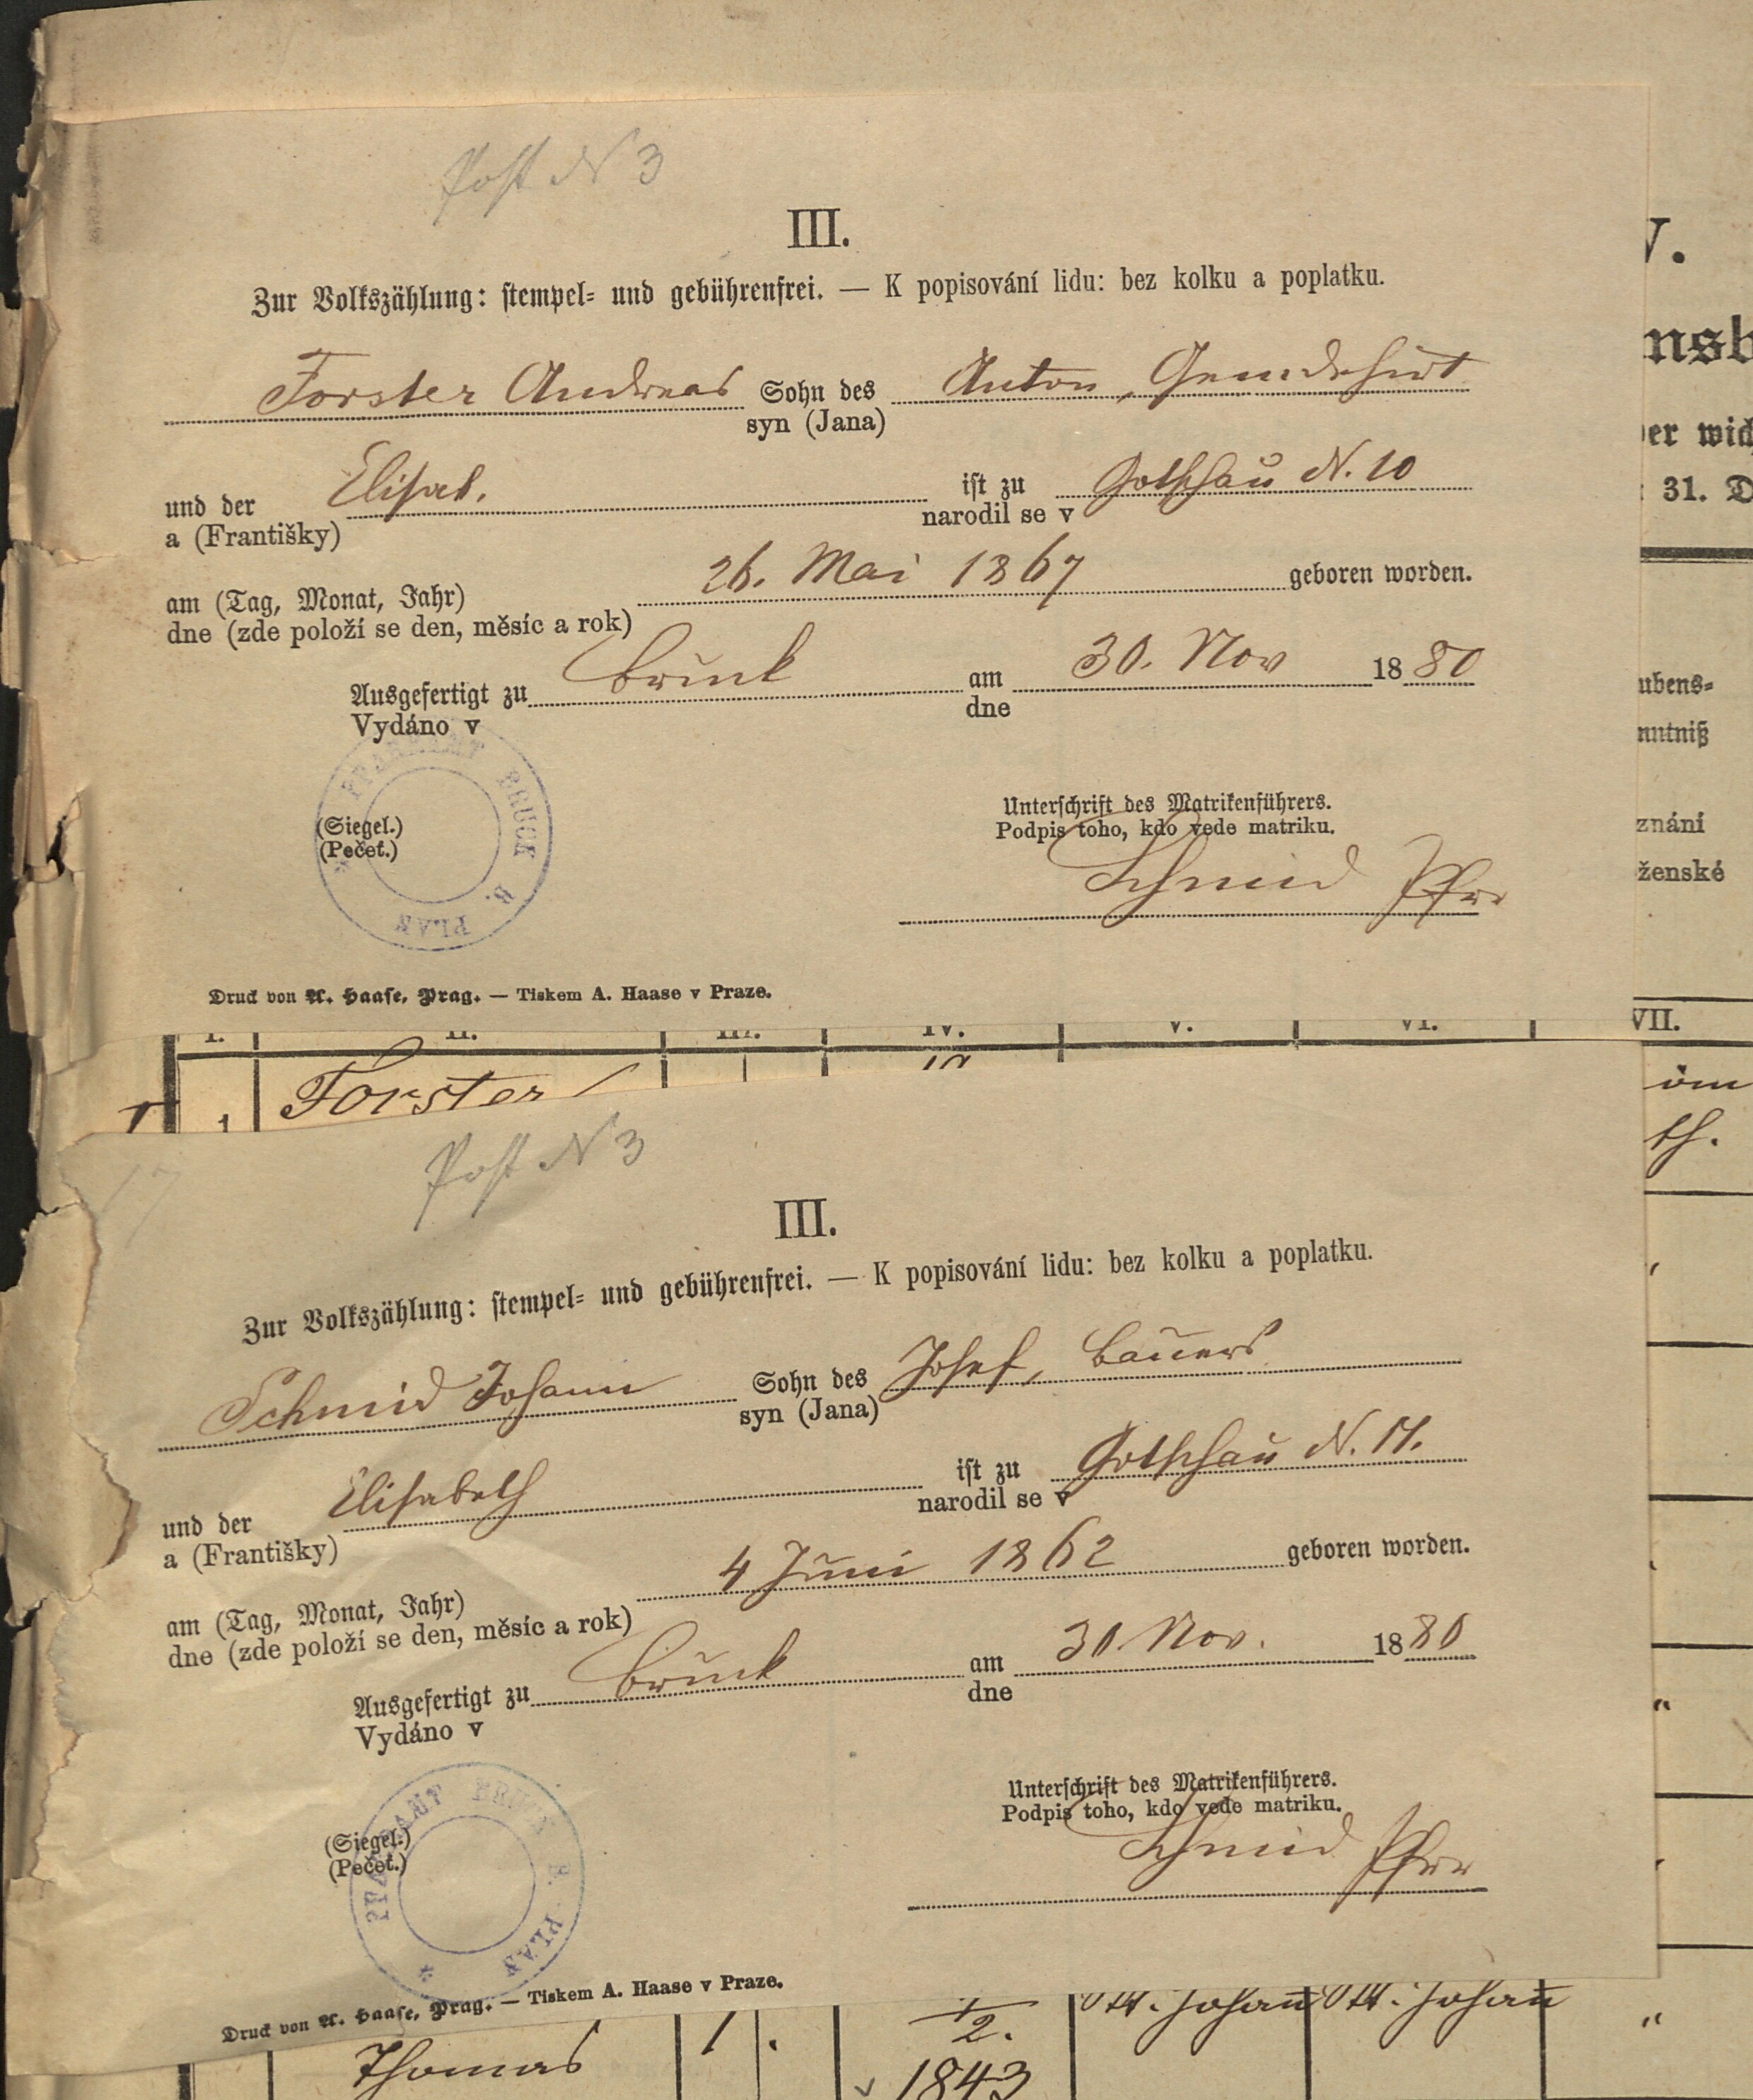 Post N 3
III.
Zur Volkszählung: stempel- und gebührenfrei. — K popisování lidu: bez kolku a poplatku.
Forster Andreas Sohn des Anton, Gemdehirt
syn (Jana)
und der Elisab. ist zu Gotschau N. 10
a (Františky) narodil se v
am (Tag, Monat, Jahr) 26. Mai 1867 geboren worden.
dne (zde položí se den, měsíc a rok)
Ausgefertigt zu Bruck am 30. Nov 1880
Vydáno v dne
PFARRAMT BRUCK B. PLAN
(Siegel.)
(Pečeť.)
Unterschrift des Matrikenführers.
Podpis toho, kdo vede matriku.
Schmid Pfrr
Druck von A. Haase, Prag. — Tiskem A. Haase v Praze.
V.
nsb
er wich
31. D
ubens-
nntniß
znání
ženské
I. II. III. IV. V. VI. VII.
1 Forster
th.
Post N 3
III.
Zur Volkszählung: stempel- und gebührenfrei. — K popisování lidu: bez kolku a poplatku.
Schmid Johann Sohn des Josef, Bauers
syn (Jana)
und der Elisabeth ist zu Gotschau N. 17.
a (Františky) narodil se v
am (Tag, Monat, Jahr) 4 Juni 1862 geboren worden.
dne (zde položí se den, měsíc a rok)
Ausgefertigt zu Bruck am 30. Nov. 1880
Vydáno v dne
PFARRAMT BRUCK B. PLAN
(Siegel.)
(Pečeť.)
Unterschrift des Matrikenführers.
Podpis toho, kdo vede matriku.
Schmid Pfrr
Druck von A. Haase, Prag. — Tiskem A. Haase v Praze.
Thomas 1 . 1/2. 1843 Johann Johann "